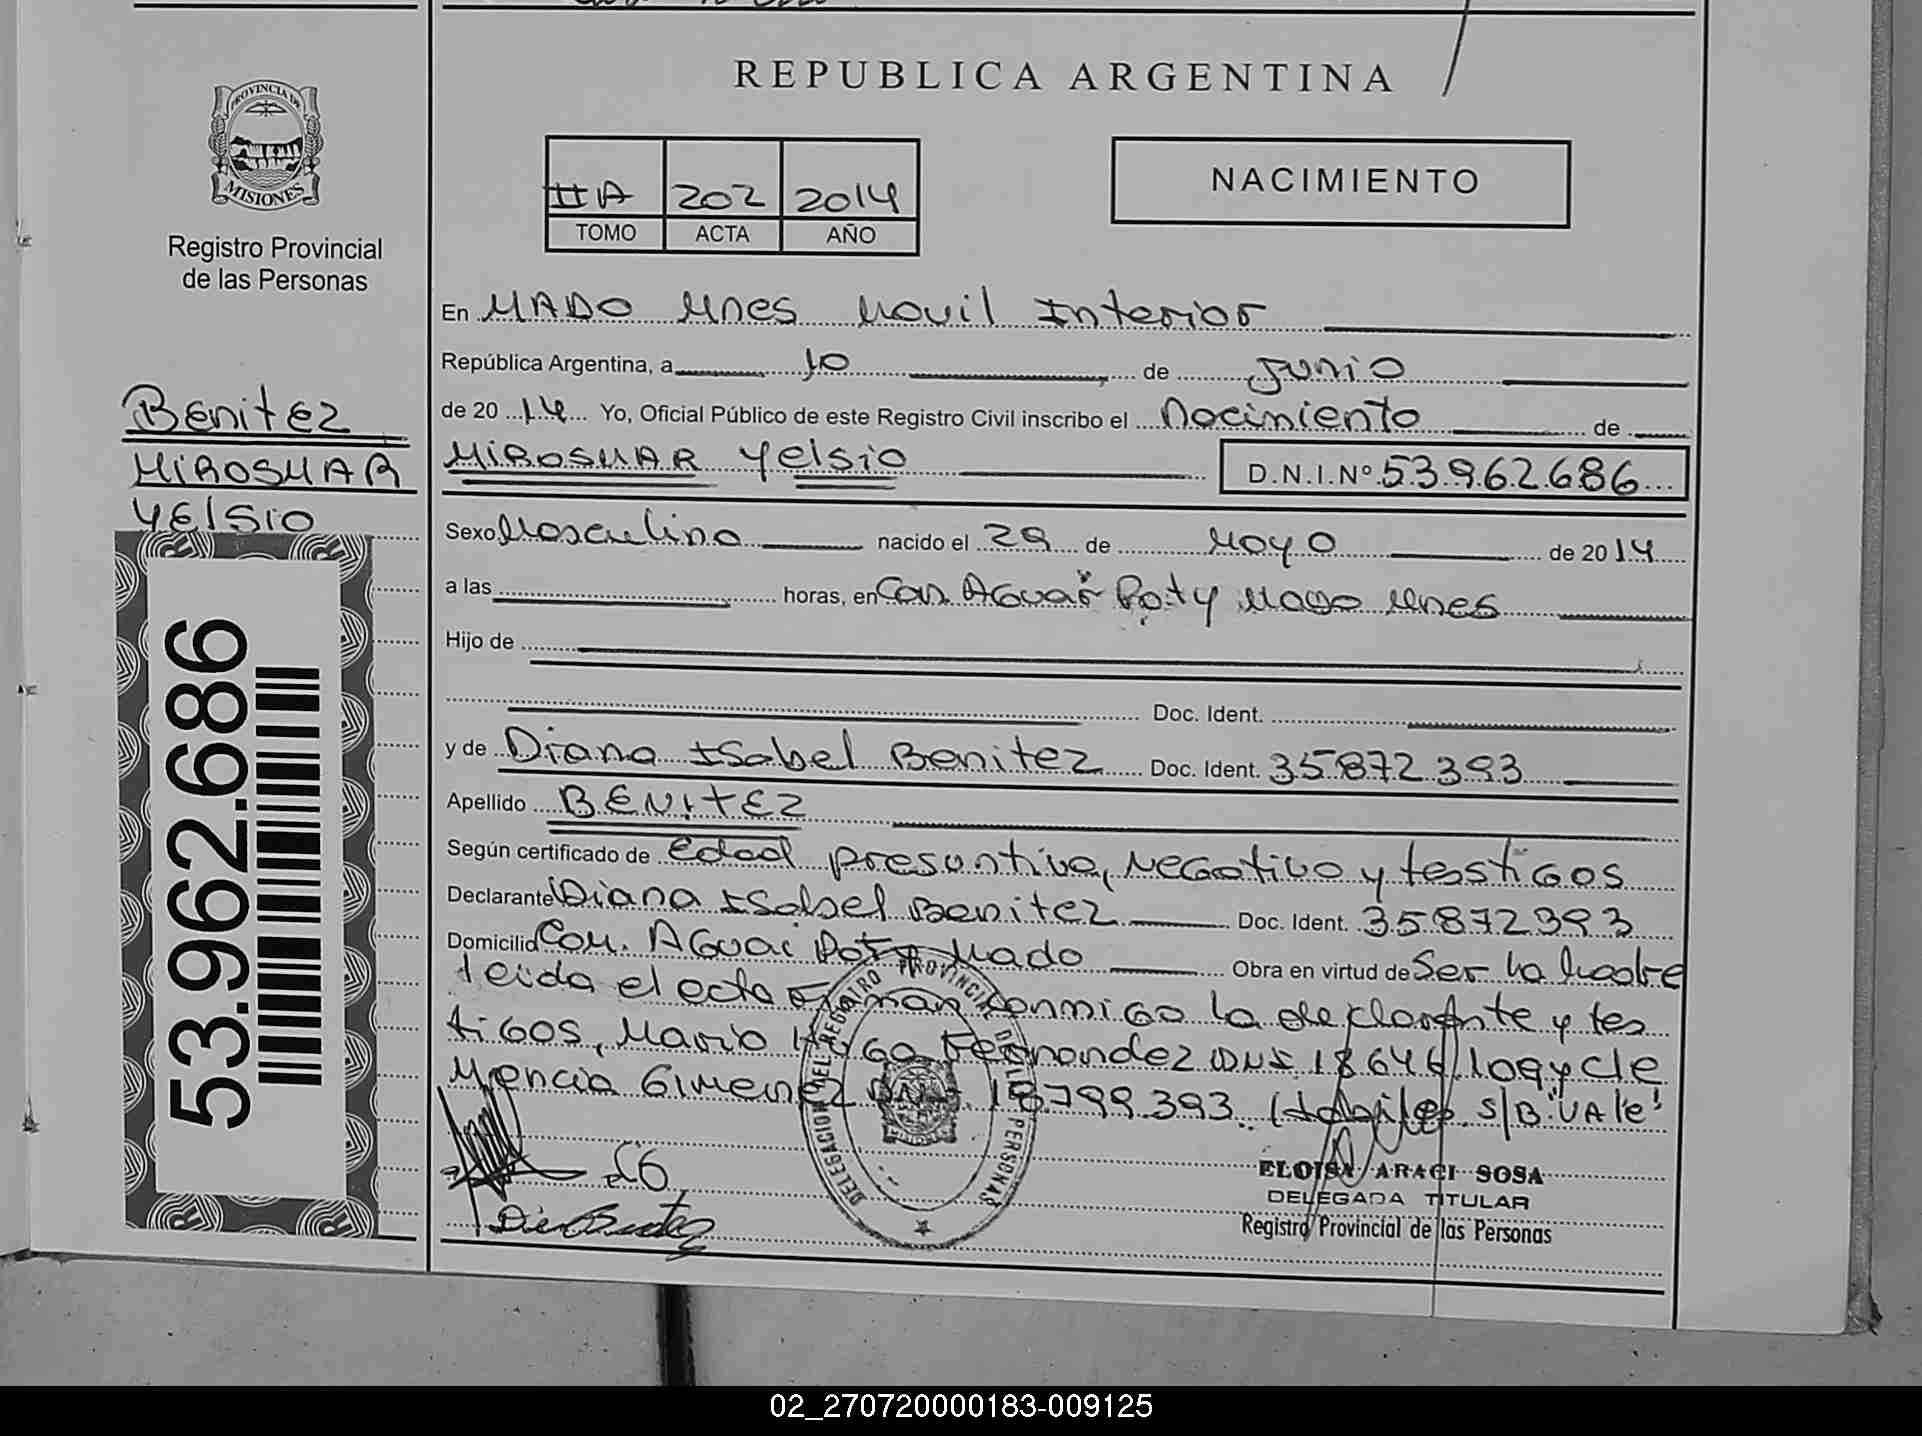 REPUBLICA ARGENTINA
PROVINCIA DE
MISIONES
Registro Provincial
de las Personas
IIA 202 2014
TOMO ACTA AÑO
NACIMIENTO
En MADO Mnes Movil Interior
República Argentina, a 10 de Junio
de 2014 Yo, Oficial Público de este Registro Civil inscribo el Nacimiento de
MIROSMAR Yelsio D.N.I.Nº 53.962.686
Benitez
MIROSMAR
YElSIO
53.962.686
Sexo Masculino nacido el 29 de Mayo de 2014
a las horas, en Com. Aguai Poty Mado Mnes
Hijo de
Doc. Ident.
y de Diana Isabel Benitez Doc. Ident. 35872393
Apellido BENITEZ
Según certificado de edad presuntiva, Negativo y testigos
Declarante Diana Isabel Benitez Doc. Ident. 35872393
Domicilio Com. Aguai Poty Mado Obra en virtud de Ser la Madre
leida el acta Firman conmigo la declarante y tes
tigos, Mario Hugo Fernandez DNI 18646 y Cle
Mencia Gimenez DNI. 18.799.393. Habiles. S/B "VAle"
DELEGACION DEL REGISTRO PROVINCIAL DE LAS PERSONAS
ELOISA ARACI SOSA
DELEGADA TITULAR
Registro Provincial de las Personas
02_270720000183-009125